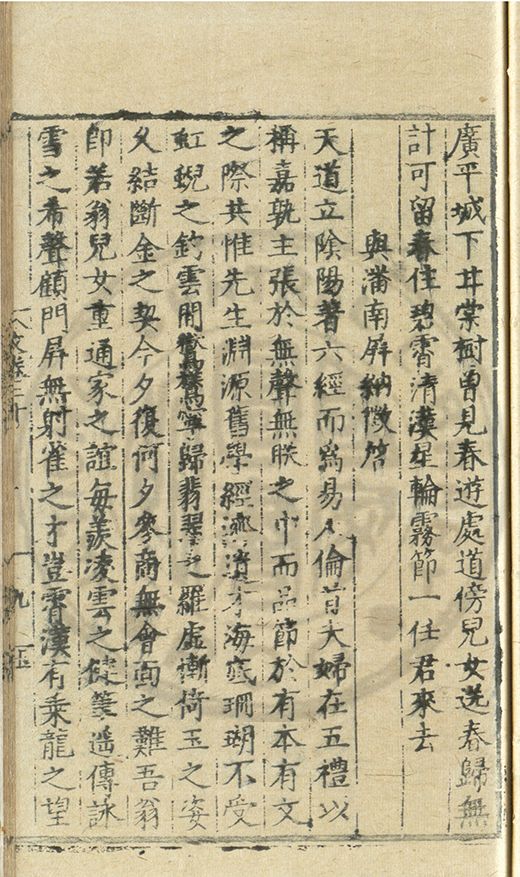 廣平城下甘棠樹曾見春遊處道傍兒女送春歸無
計可留春住碧霄清漢星輪霧節一任君來去
與潘南屏納徵啓
天道立陰陽著六經而爲易人倫首夫婦在五禮以
稱嘉孰主張於無聲無朕之中而品節於有本有文
之際共惟先生淵源舊學經濟清才海底珊瑚不受
虹蜺之釣雲間寧歸翡翠之羅虛慚倚玉之姿
久結斷金之契今夕復何夕參商無會面之難吾翁
卽若翁兒女重通家之誼每羨凌雲之健筆遥傳詠
雪之希聲顧門屏無射雀之才豈霄漢有乗龍之望
文卷三十 九